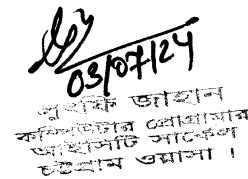 03/07/24
জাহান
কম্পিউটার প্রোগ্রামার
আইসিটি সার্কেল
চট্টগ্রাম ওয়াসা ।